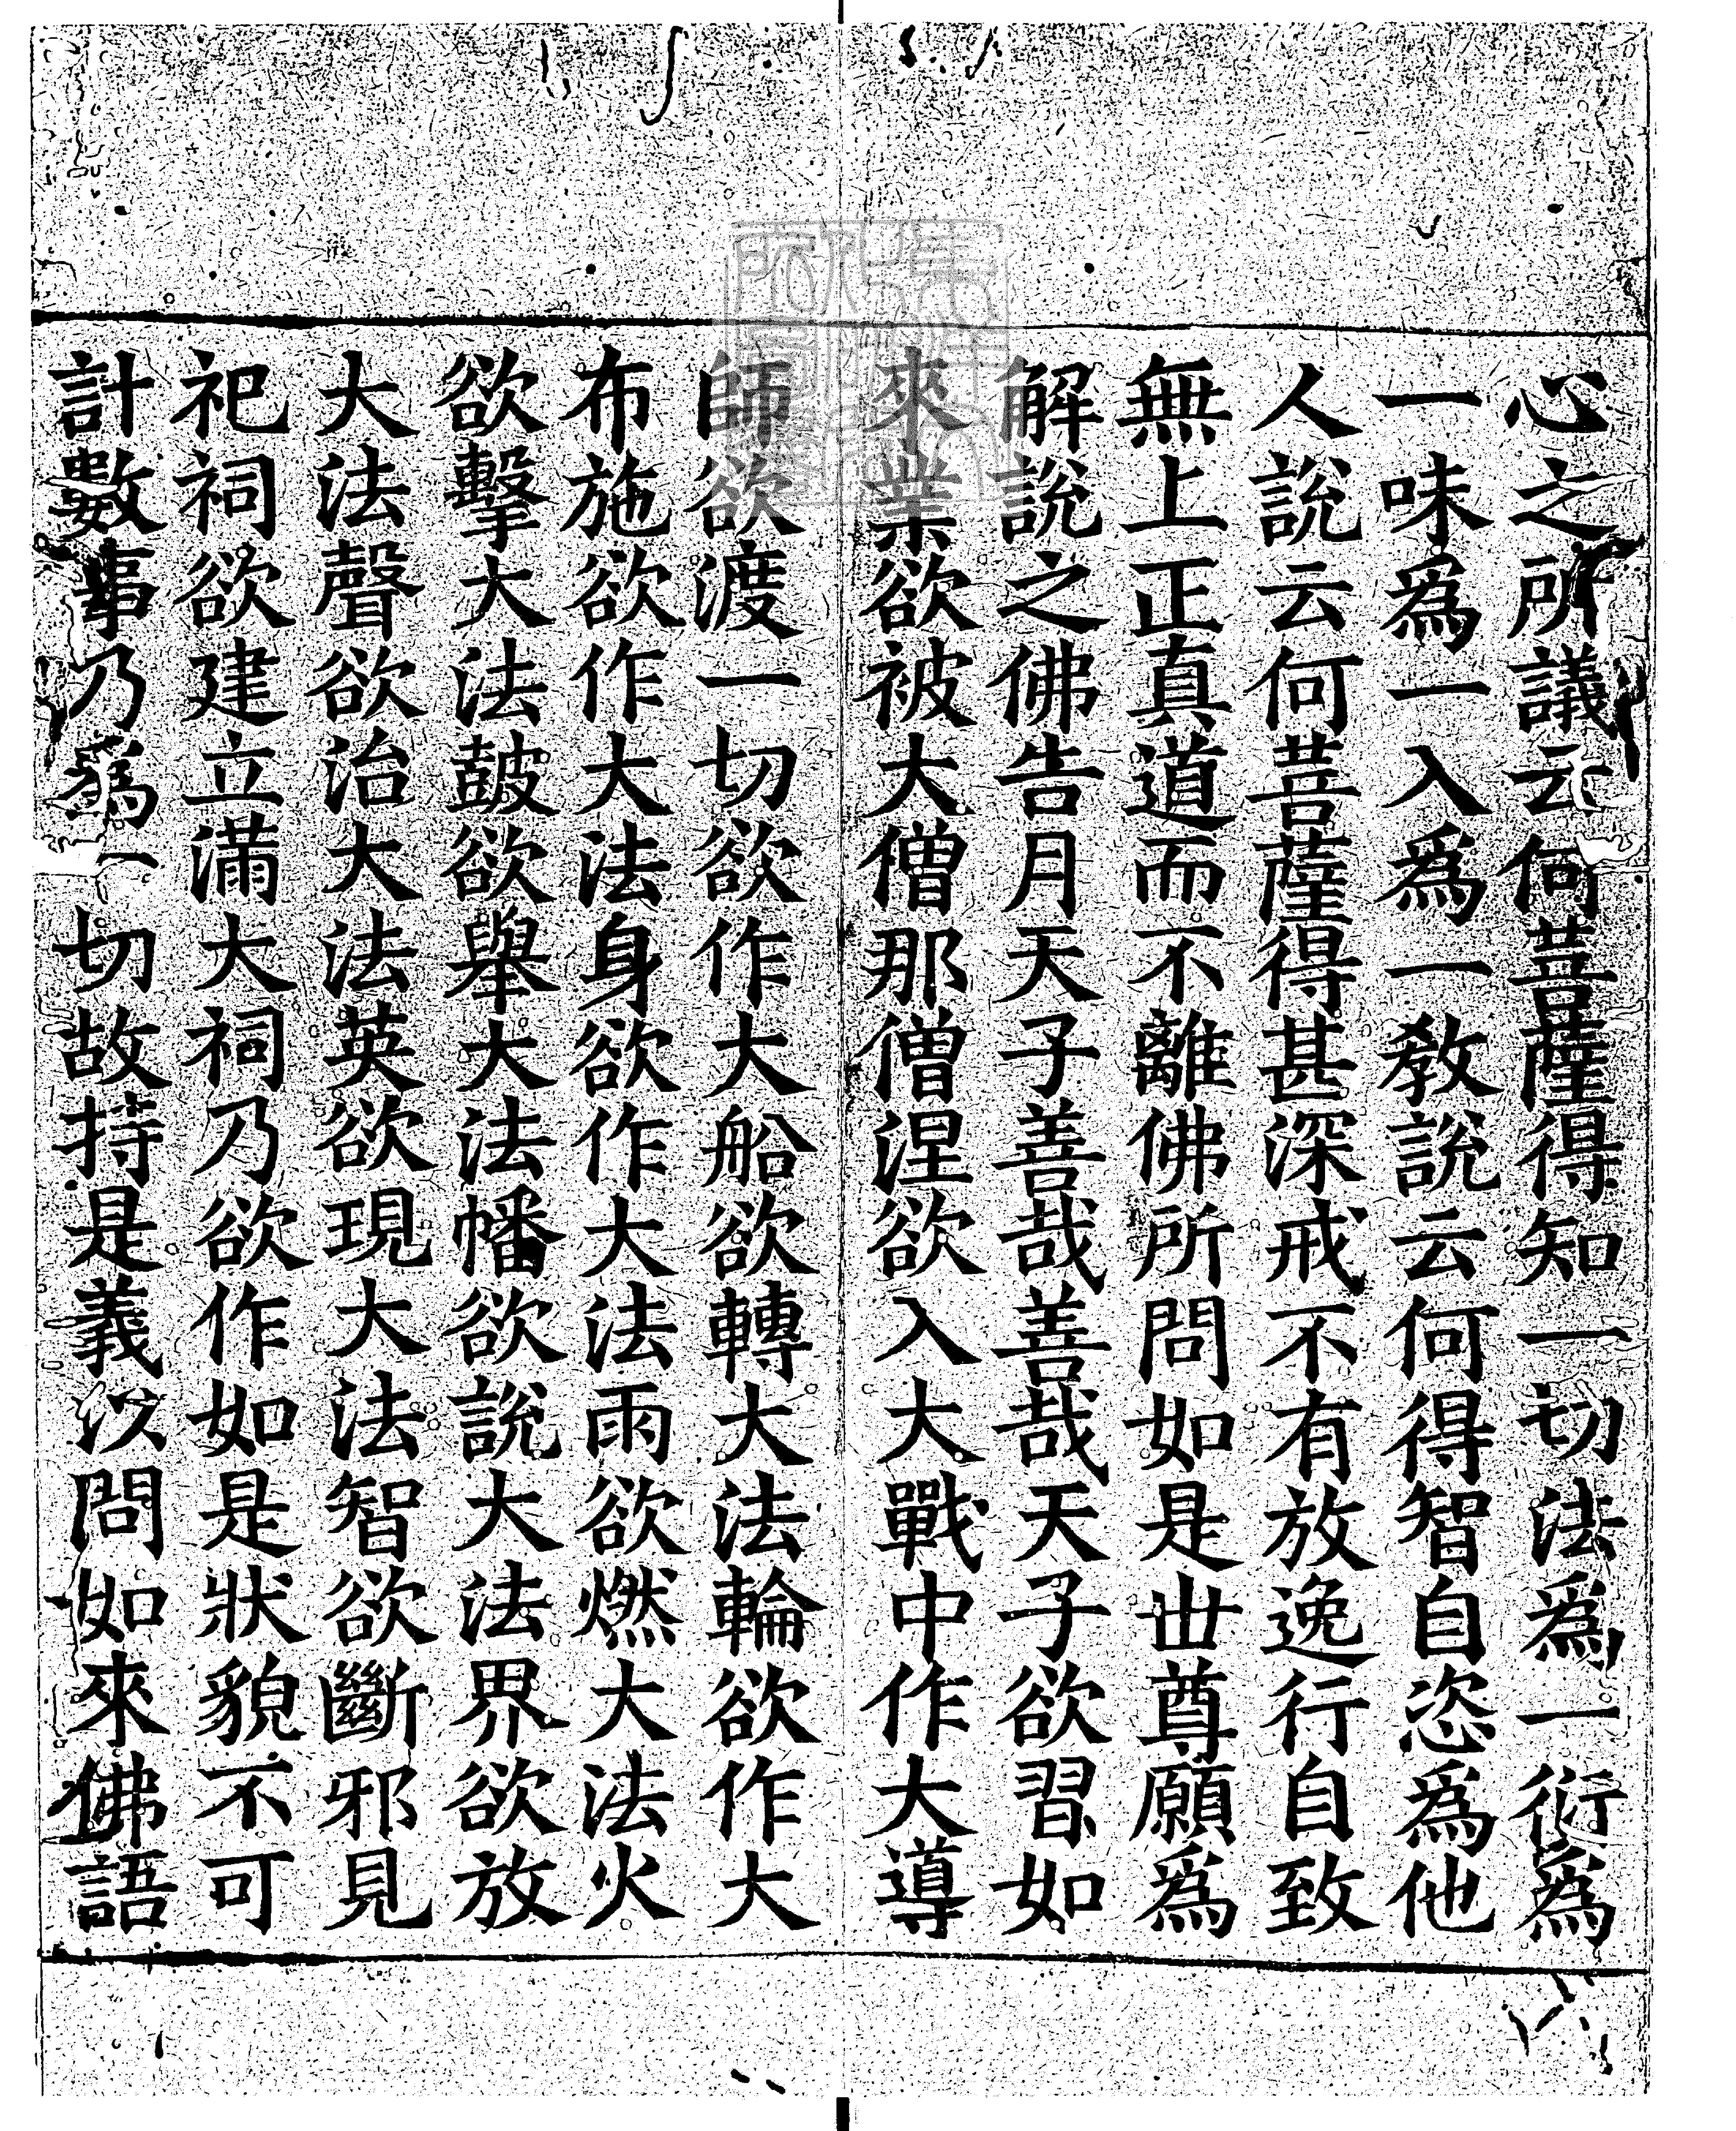 心之所議云何菩薩得知一切法爲一衍爲
一味爲一入爲一教說云何得智自恣爲他
人說云何菩薩得甚深戒不有放逸行自致
無上正真道而不離佛所問如是世尊願爲
解說之佛告月天子善哉善哉天子欲習如
來業欲被大僧那僧涅欲入大戰中作大導
師欲渡一切欲作大船欲轉大法輪欲作大
布施欲作大法身欲作大法雨欲燃大法火
欲擊大法鼓欲舉大法幡欲說大法界欲放
大法聲欲治大法英欲現大法智欲斷邪見
祀祠欲建立滿大祠乃欲作如是狀貌不可
計數事乃爲一切故持是義以問如來佛語